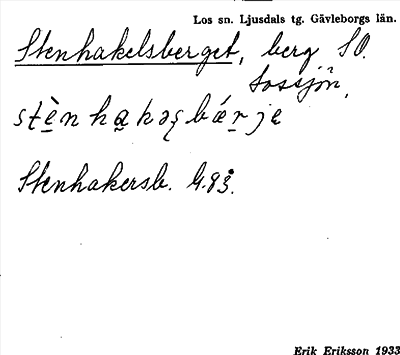 Los sn. Ljusdals tg. Gävleborgs län.
Stenhakelsberget, berg SO.
Lossjön,
Stenhakersb. G.93.
Erik Eriksson 1933